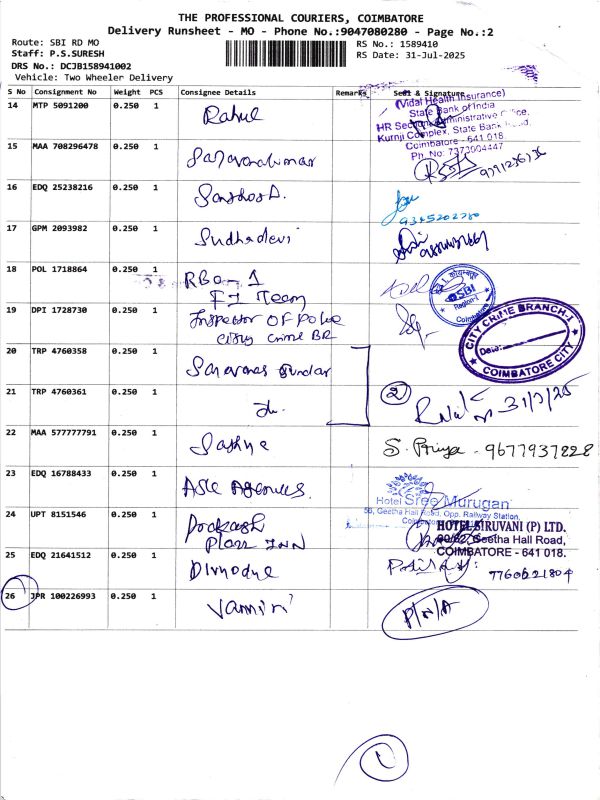 THE PROFESSIONAL COURIERS, COIMBATORE
Delivery Runsheet - MO - Phone No.:9047080280 - Page No.:2
Route: SBI RD MO
Staff: P.S.SURESH
DRS No.: DCJB158941002
Vehicle: Two Wheeler Delivery
RS No.: 1589410
RS Date: 31-Jul-2025
S No Consignment No Weight PCS Consignee Details Remarks Seal & Signature
14 MTP 5091200 0.250 1 Rahul
(Vidal Health Insurance)
State Bank of India
HR Section, Administrative Office,
Kurnji Complex, State Bank Road,
Coimbatore - 641 018.
Ph. No: 7373004447
15 MAA 708296478 0.250 1 Saravanakumar
16 EDQ 25238216 0.250 1 Santhosh.
9345202780
17 GPM 2093982 0.250 1 Sudhadevi
18 POL 1718864 0.250 1 RBO-1
FI Team
SBI
Region-I
Coimbatore
19 DPI 1728730 0.250 1 Inspector OF Police
city crime BR
CITY CRIME BRANCH-I
Date:
COIMBATORE CITY
20 TRP 4760358 0.250 1 Saravana Sundar
21 TRP 4760361 0.250 1 do.
2
31/7/25
22 MAA 577777791 0.250 1 Sathya S. Priya - 9677937228
23 EDQ 16788433 0.250 1 Agencies.
Hotel Sree Murugan
56, Geetha Hall Road, Opp. Railway Station,
24 UPT 8151546 0.250 1 Prakash
Plass INN
HOTEL SIRUVANI (P) LTD.
Geetha Hall Road,
COIMBATORE - 641 018.
25 EDQ 21641512 0.250 1
7760621804
26 JPR 100226993 0.250 1 P/N/A
1